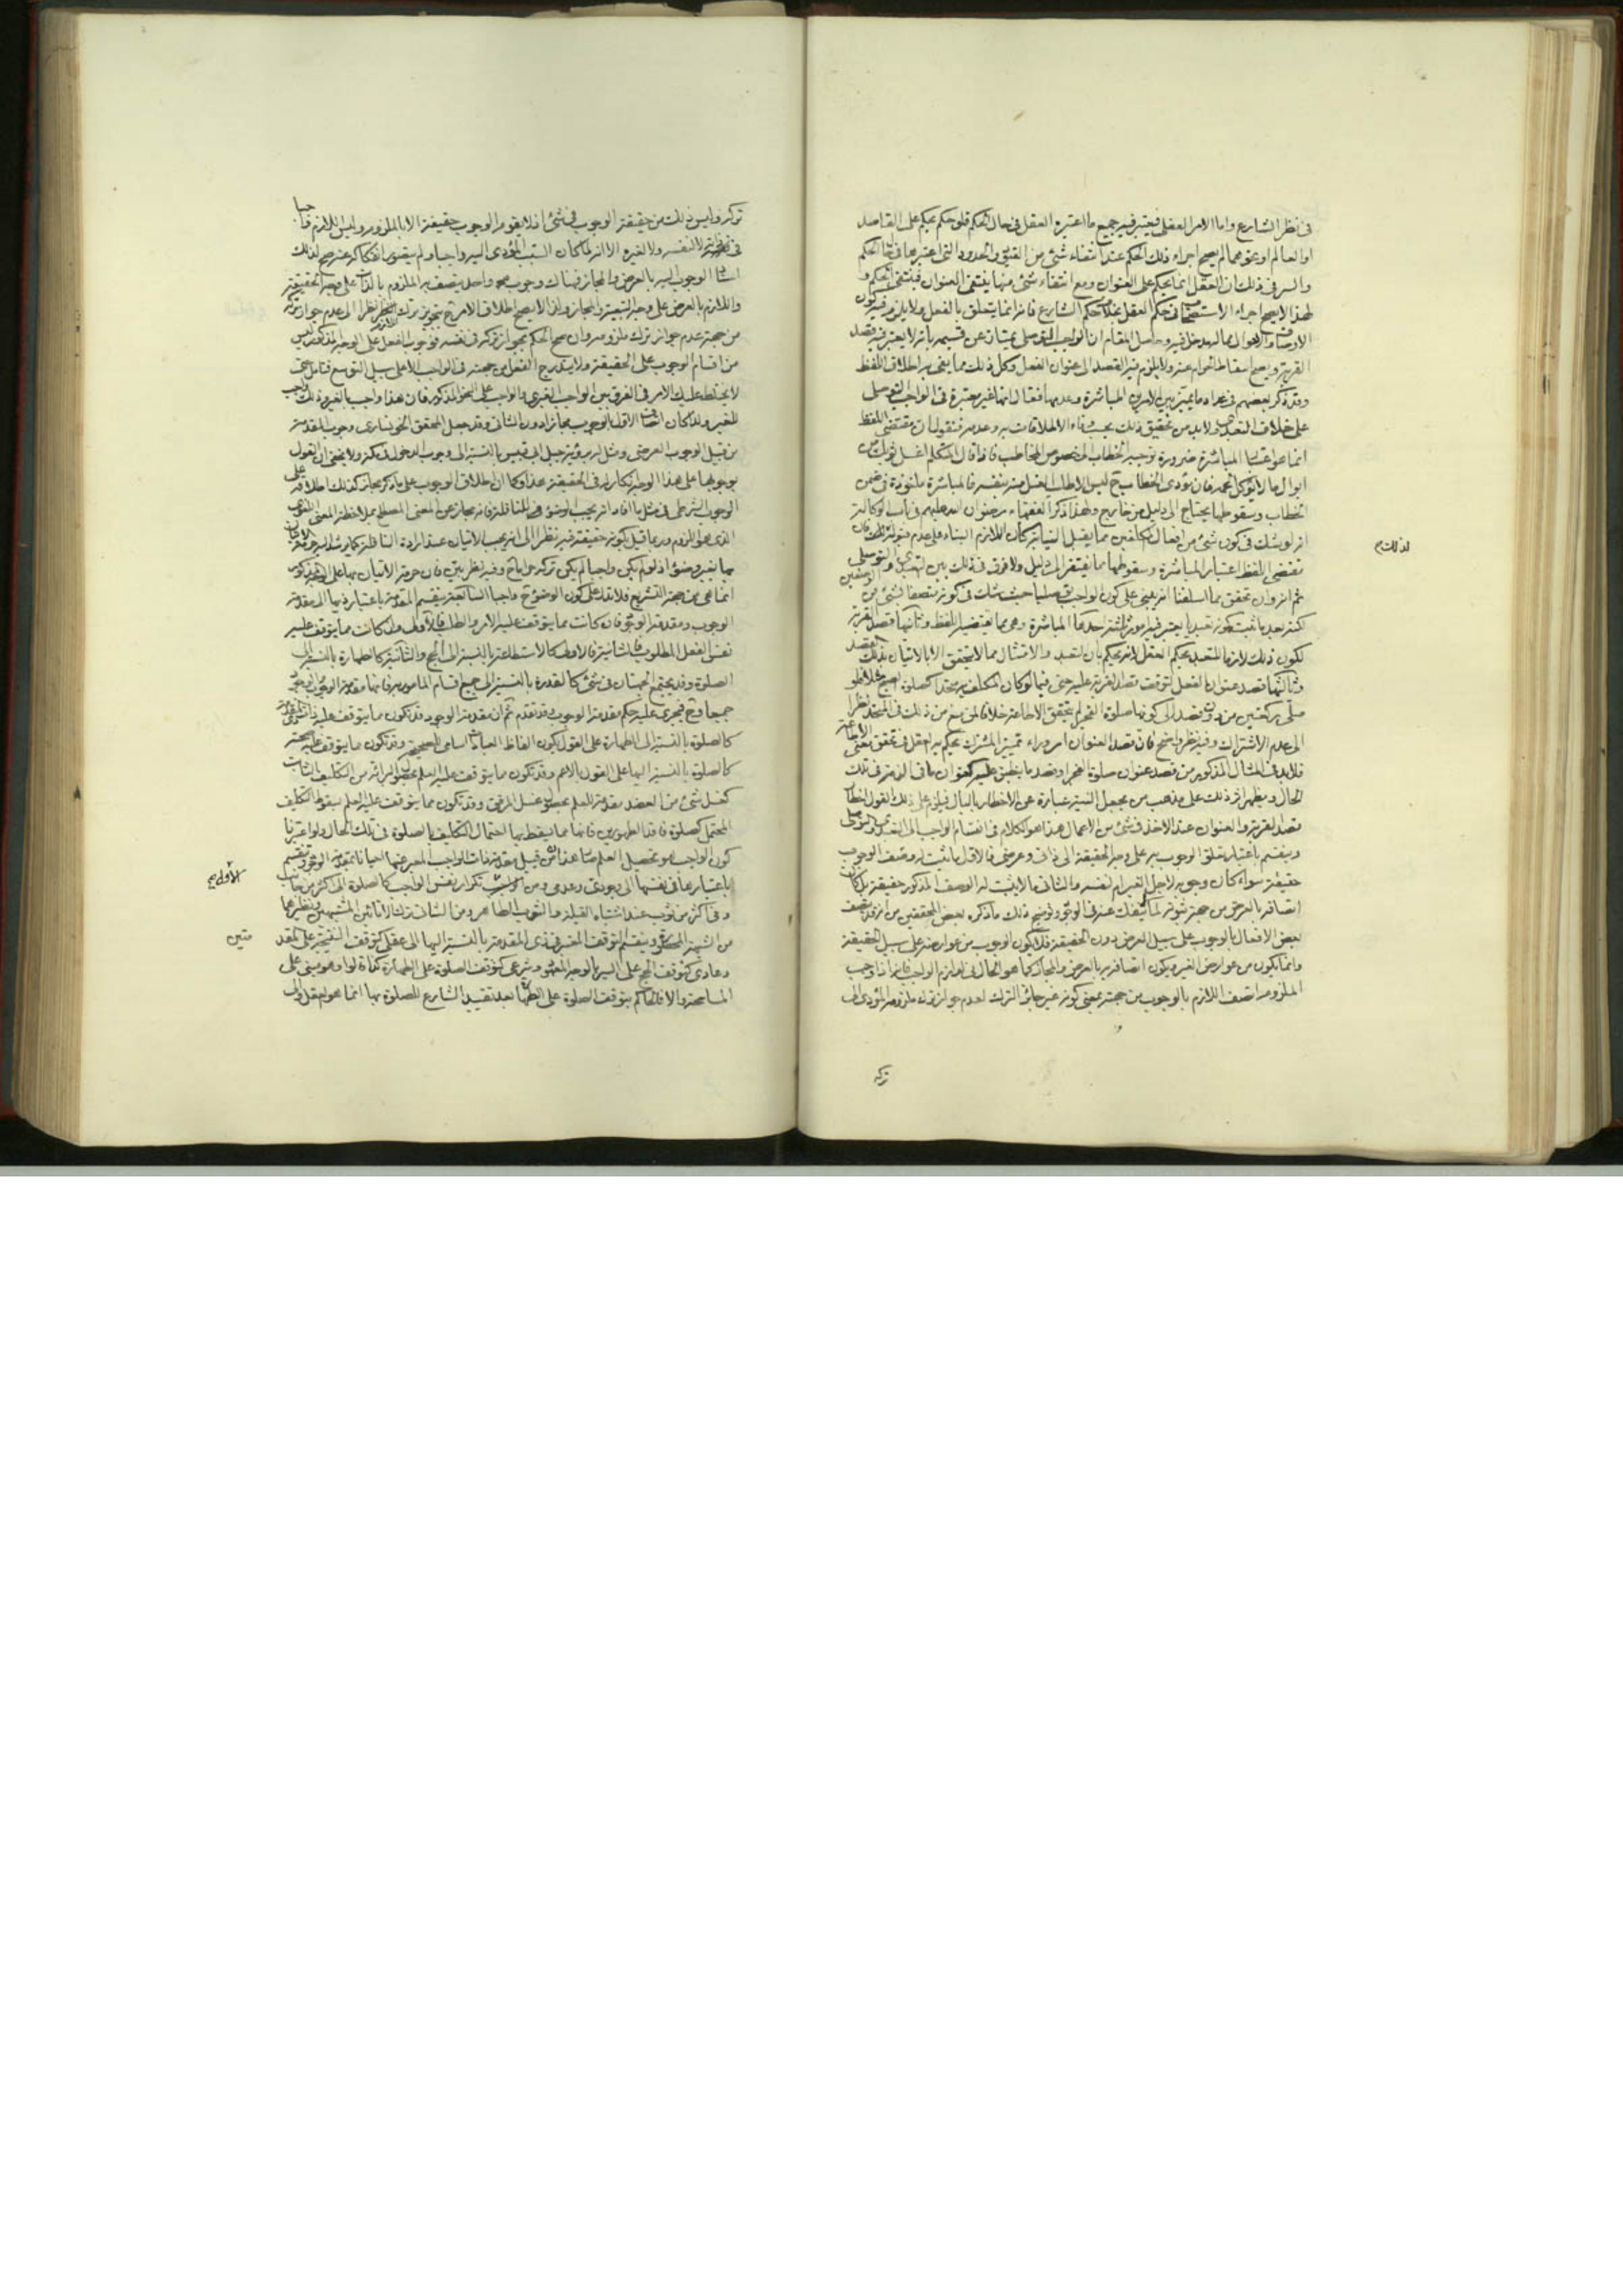 في نظر الشارع واما الامر العقلي فيعتبر فيه جميع ما اعتبره العقل في حال الحكم فلو حكم بحكم على القاصد
او العالم او نحوهما لم يصح اجراء ذلك الحكم عند انتفاء شئ من القيود والحدود التي اعتبرها في الحكم
والسر في ذلك ان العقل انما يحكم على العنوان ومع انتفاء شئ منها ينتفي العنوان فينتفي الحكم و
لهذا لا يصح اجراء الاستصحاب في حكم العقل بخلاف حكم الشارع فانه انما يتعلق بالفعل ولا يلزم فيه كون
الاوصاف والاحوال مما لهم دخل فيه وحاصل المقام ان الواجب التوصلي يمتاز عن قسيمه بانه لا يعتبر فيه قصد
القربة ويصح اسقاط الحرام عنه ولا يلزم فيه القصد الى عنوان الفعل وكل ذلك مما ينفى به اطلاق اللفظ
وقد ذكر بعضهم في عداد ما يتميز بين الامرين المباشرة وعدمها فقال انها غير معتبرة في الواجب التوصلي
على خلاف التعبدي ولا بد من تحقيق ذلك بحيث الاطلاقات به وعدمه فنقول ان مقتضى اللفظ
انما هو اعتبار المباشرة ضرورة توجيه الخطاب الى خصوص المخاطب فاذا قال المتكلم اغسل ثوبك من
ابوال ما لا يؤكل لحمه فان مؤدى الخطاب ح ليس الا طلب الغسل منه بنفسه فالمباشرة ماخوذة في ضمن
الخطاب وسقوطها يحتاج الى دليل من خارج ولهذا ذكر الفقهاء رضوان الله عليهم في باب الوكالة
انه لو شك في كون شئ من افعال المكلفين مما يقبل النيابة كان اللازم البناء على عدم قبوله لذلك فان
لذلك صح
مقتضى اللفظ اعتبار المباشرة وسقوطها مما يفتقر الى دليل ولا فرق في ذلك بين التعبدي والتوصلي
ثم انه وان تحقق مما اسلفنا انه يبنى على كون الواجب توصليا حيث شك في كونه متصفا بشئ من الوصفين
لكنه بعد ما ثبت كونه تعبديا يعتبر فيه امور ثلثة احدها المباشرة وهي مما يقتضيه اللفظ وثانيها قصد القربة
لكون ذلك لازما للتعبد بحكم العقل لانه يحكم بان التعبد والامتثال مما لا يتحقق الا بالاتيان بذلك القصد
وثالثها قصد عنوان الفعل لتوقف قصد القربة عليه حتى فيما لو كان المكلف به متحدا كصلوة الصبح مثلا فلو
صلى ركعتين من دون قصد الى كونها صلوة الفجر لم يتحقق الاطاعة خلافا لمن منع من ذلك في المتحد نظرا
الى عدم الاشتراك وفيه نظر واضح فان قصد العنوان امر وراء تمييز المشترك يحكم به العقل في تحقق معنى الاطاعة
فلا بد في المثال المذكور من قصد عنوان صلوة الفجر او قصد ما ينطبق عليه كعنوان ما في الذمة في تلك
الحال ويظهر اثر ذلك على مذهب من يجعل النية عبارة عن الاخطار بالبال فيلزم على ذلك القول اخطار
قصد القربة والعنوان عند الاخذ في شئ من الاعمال هذا هو الكلام في انقسام الواجب الى التعبدي والتوصلي
وينقسم باعتبار تعلق الوجوب به على وجه الحقيقة الى ذاتي وعرضي فالاول ما يثبت له وصف الوجوب
حقيقة سواء كان وجوبه لاجل الغير ام لنفسه والثاني ما لا يثبت له الوصف المذكور حقيقة بل كان
اتصافه بالعرض من جهة ثبوته لما لا ينفك عنه في الوجود وتوضيح ذلك ما ذكره بعض المحققين من انه قد يتصف
بعض الافعال بالوجوب على سبيل العرض دون الحقيقة فلا يكون الوجوب من عوارضه على سبيل الحقيقة
وانما يكون من عوارض الغير ويكون اتصافه به بالعرض والمجاز كما هو الحال في لوازم الواجب فانه اذا وجب
الملزوم اتصف اللازم بالوجوب من جهته بمعنى كونه غير جائز الترك لعدم جواز ترك ملزومه المؤدي الى
تركه
تركه وليس ذلك من حقيقة الوجوب في شئ اذ لا يقوم الوجوب حقيقة الا بالملزوم وليس اللازم واجبا
في نفسه لا لنفسه ولا لغيره الا انه لما كان السبب المؤدي اليه واجبا ولم يتصور انفكاكه عنه صح لذلك
اسناد الوجوب اليه بالعرض والمجاز فهناك وجوب واحد يتصف به الملزوم بالذات على وجه الحقيقة
واللازم بالعرض على وجه التبعية والمجاز ولذا لا يصح اطلاق الامر بتجويز ترك اللازم نظرا الى عدم جواز تركه
من جهة عدم جواز ترك ملزومه وان صح الحكم بجواز تركه في نفسه فوجوب الفعل على الوجه المذكور ليس
من اقسام الوجوب على الحقيقة ولا يندرج الفعل من جهته في الواجب الا على سبيل التوسع فتامل حتى
لا يختلط عليك الامر في الفرق بين الواجب الغيري والواجب على النحو المذكور فان هذا واجب بالغير وذلك واجب
للغير ولذا كان اتصاف الاول بالوجوب مجازا دون الثاني وقد جعل المحقق الخونساري وجوب المقدمة
من قبيل الوجوب العرضي ومثل له برؤية جبل ابي قبيس بالنسبة الى وجوب الدخول في مكة ولا يخفى ان القول
بوجوبها على هذا الوجه انكار له في الحقيقة هذا وكما ان اطلاق الوجوب على ما ذكر مجاز كذلك اطلاقه على
الوجوب الشرطي في مثل ما افاد انه يجب الوضوء للنافلة فانه مجاز عن المعنى المصطلح بملاحظة المعنى اللغوي
الذي هو اللزوم وربما قيل بكونه حقيقة فيه نظرا الى انه يجب الاتيان عند ارادة النافلة كما يرشد اليه حرمة الاتيان
بها بغير وضوء اذ لو لم يكن واجبا لم يكن تركه حراما ح وفيه نظر بين فان حرمة الاتيان بها على الوجه المذكور
انما هي من جهة التشريع فلا تدل على كون الوضوء ح واجبا السابعة ينقسم المقدمة باعتبار ذيها الى مقدمة
الوجوب ومقدمة الوجود فان كانت مما يتوقف عليه الامر والطلب فالاولى وان كانت مما يتوقف عليه
نفس الفعل المطلوب فالثانية فالاولى كالاستطاعة بالنسبة الى الحج والثانية كالطهارة بالنسبة الى
الصلوة وقد يجتمع الجهتان في شئ كالقدرة بالنسبة الى جميع اقسام المامور به فانها مقدمة الوجوب والوجود
جميعا وح فيجري عليه حكم مقدمة الوجوب وقد تقدم ثم ان مقدمة الوجود قد تكون مما يتوقف عليه ذات ذي المقدمة
كالصلوة بالنسبة الى الطهارة على القول بكون الفاظ العبادات اسامي للصحيحة وقد تكون مما يتوقف عليه صحته
كالصلوة بالنسبة اليها على القول بالاعم وقد تكون مما يتوقف عليه العلم بحصول البرائة من التكليف الثابت
كغسل شئ من العضد مقدمة للعلم بحصول غسل المرفق وقد تكون مما يتوقف عليه العلم بسقوط التكليف
المحتمل كصلوة فاقد الطهورين فانها مما يسقط بها احتمال التكليف بالصلوة في تلك الحال ولو اعتبرنا
كون الواجب هو تحصيل العلم من قبيل مقدمة ذات الواجب المعبر عنها احيانا بمقدمة الوجود وتنقسم
الاولى صح
باعتبارها في نفسها الى وجودي وعدمي ومن تكرار نفس الواجب كالصلوة الى اكثر من جانب
وفي اكثر من ثوب عند اشتباه القبلة والثوب الطاهر ومن الثاني ترك الانائين المشتبهين ونظيرهما
من الشبهة المحصورة وينقسم التوقف المعتبر في ذي المقدمة بالنسبة اليها الى عقلي كتوقف النتيجة على المقد
متين
وعادي كتوقف الحج على السير بالوجه المعهود وشرعي كتوقف الصلوة على الطهارة كذا قالوا وهو مبني على
المسامحة والا فالحاكم بتوقف الصلوة على الطهارة بعد تقييد الشارع للصلوة بها انما هو العقل والى